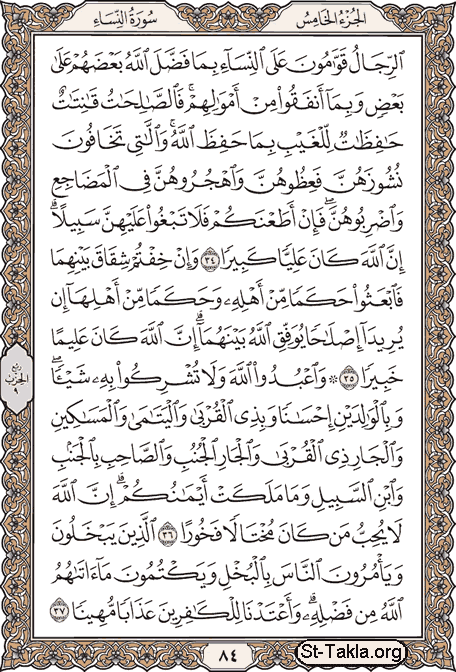 الجُزْءُ الخَامِسُ سُورَةُ النِّسَاءِ
الرِّجَالُ قَوَّٰمُونَ عَلَى النِّسَآءِ بِمَا فَضَّلَ اللَّهُ بَعْضَهُمْ عَلَىٰ
بَعْضٍ وَبِمَآ أَنفَقُوا۟ مِنْ أَمْوَٰلِهِمْ ۚ فَالصَّٰلِحَٰتُ قَٰنِتَٰتٌ
حَٰفِظَٰتٌ لِّلْغَيْبِ بِمَا حَفِظَ اللَّهُ ۚ وَالَّٰتِى تَخَافُونَ
نُشُوزَهُنَّ فَعِظُوهُنَّ وَاهْجُرُوهُنَّ فِى الْمَضَاجِعِ
وَاضْرِبُوهُنَّ ۖ فَإِنْ أَطَعْنَكُمْ فَلَا تَبْغُوا۟ عَلَيْهِنَّ سَبِيلًا ۗ
إِنَّ اللَّهَ كَانَ عَلِيًّا كَبِيرًا ٣٤ وَإِنْ خِفْتُمْ شِقَاقَ بَيْنِهِمَا
فَابْعَثُوا۟ حَكَمًا مِّنْ أَهْلِهِۦ وَحَكَمًا مِّنْ أَهْلِهَآ إِن
يُرِيدَآ إِصْلَٰحًا يُوَفِّقِ اللَّهُ بَيْنَهُمَآ ۗ إِنَّ اللَّهَ كَانَ عَلِيمًا
خَبِيرًا ٣٥ ۞ وَاعْبُدُوا۟ اللَّهَ وَلَا تُشْرِكُوا۟ بِهِۦ شَيْـًٔا ۖ
وَبِالْوَٰلِدَيْنِ إِحْسَٰنًا وَبِذِى الْقُرْبَىٰ وَالْيَتَٰمَىٰ وَالْمَسَٰكِينِ
وَالْجَارِ ذِى الْقُرْبَىٰ وَالْجَارِ الْجُنُبِ وَالصَّاحِبِ بِالْجَنۢبِ
وَابْنِ السَّبِيلِ وَمَا مَلَكَتْ أَيْمَٰنُكُمْ ۗ إِنَّ اللَّهَ
لَا يُحِبُّ مَن كَانَ مُخْتَالًا فَخُورًا ٣٦ الَّذِينَ يَبْخَلُونَ
وَيَأْمُرُونَ النَّاسَ بِالْبُخْلِ وَيَكْتُمُونَ مَآ ءَاتَىٰهُمُ
اللَّهُ مِن فَضْلِهِۦ ۗ وَأَعْتَدْنَا لِلْكَٰفِرِينَ عَذَابًا مُّهِينًا ٣٧
ربع
الحزب
٩
٨٤
St-Takla.org